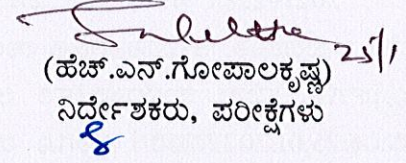 25/1
(ಹೆಚ್.ಎನ್.ಗೋಪಾಲಕೃಷ್ಣ)
ನಿರ್ದೇಶಕರು, ಪರೀಕ್ಷೆಗಳು